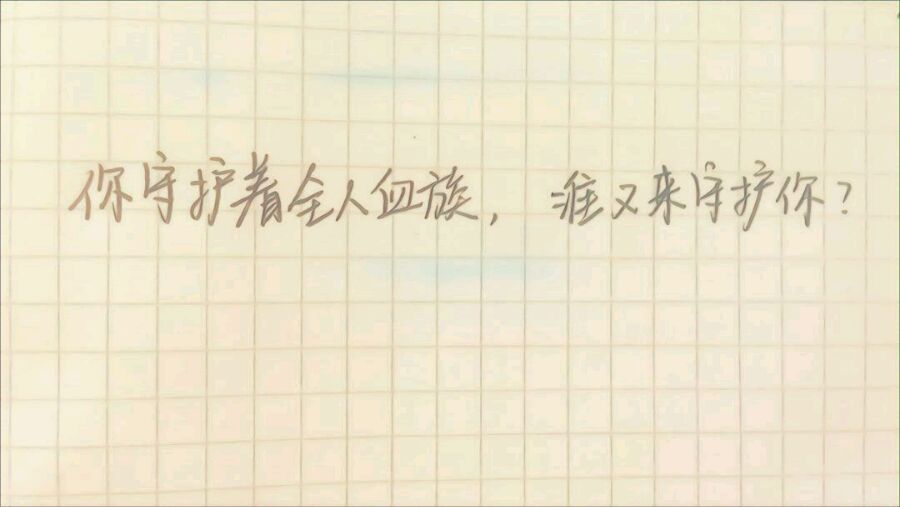 你守护着全人血族，谁又来守护你？